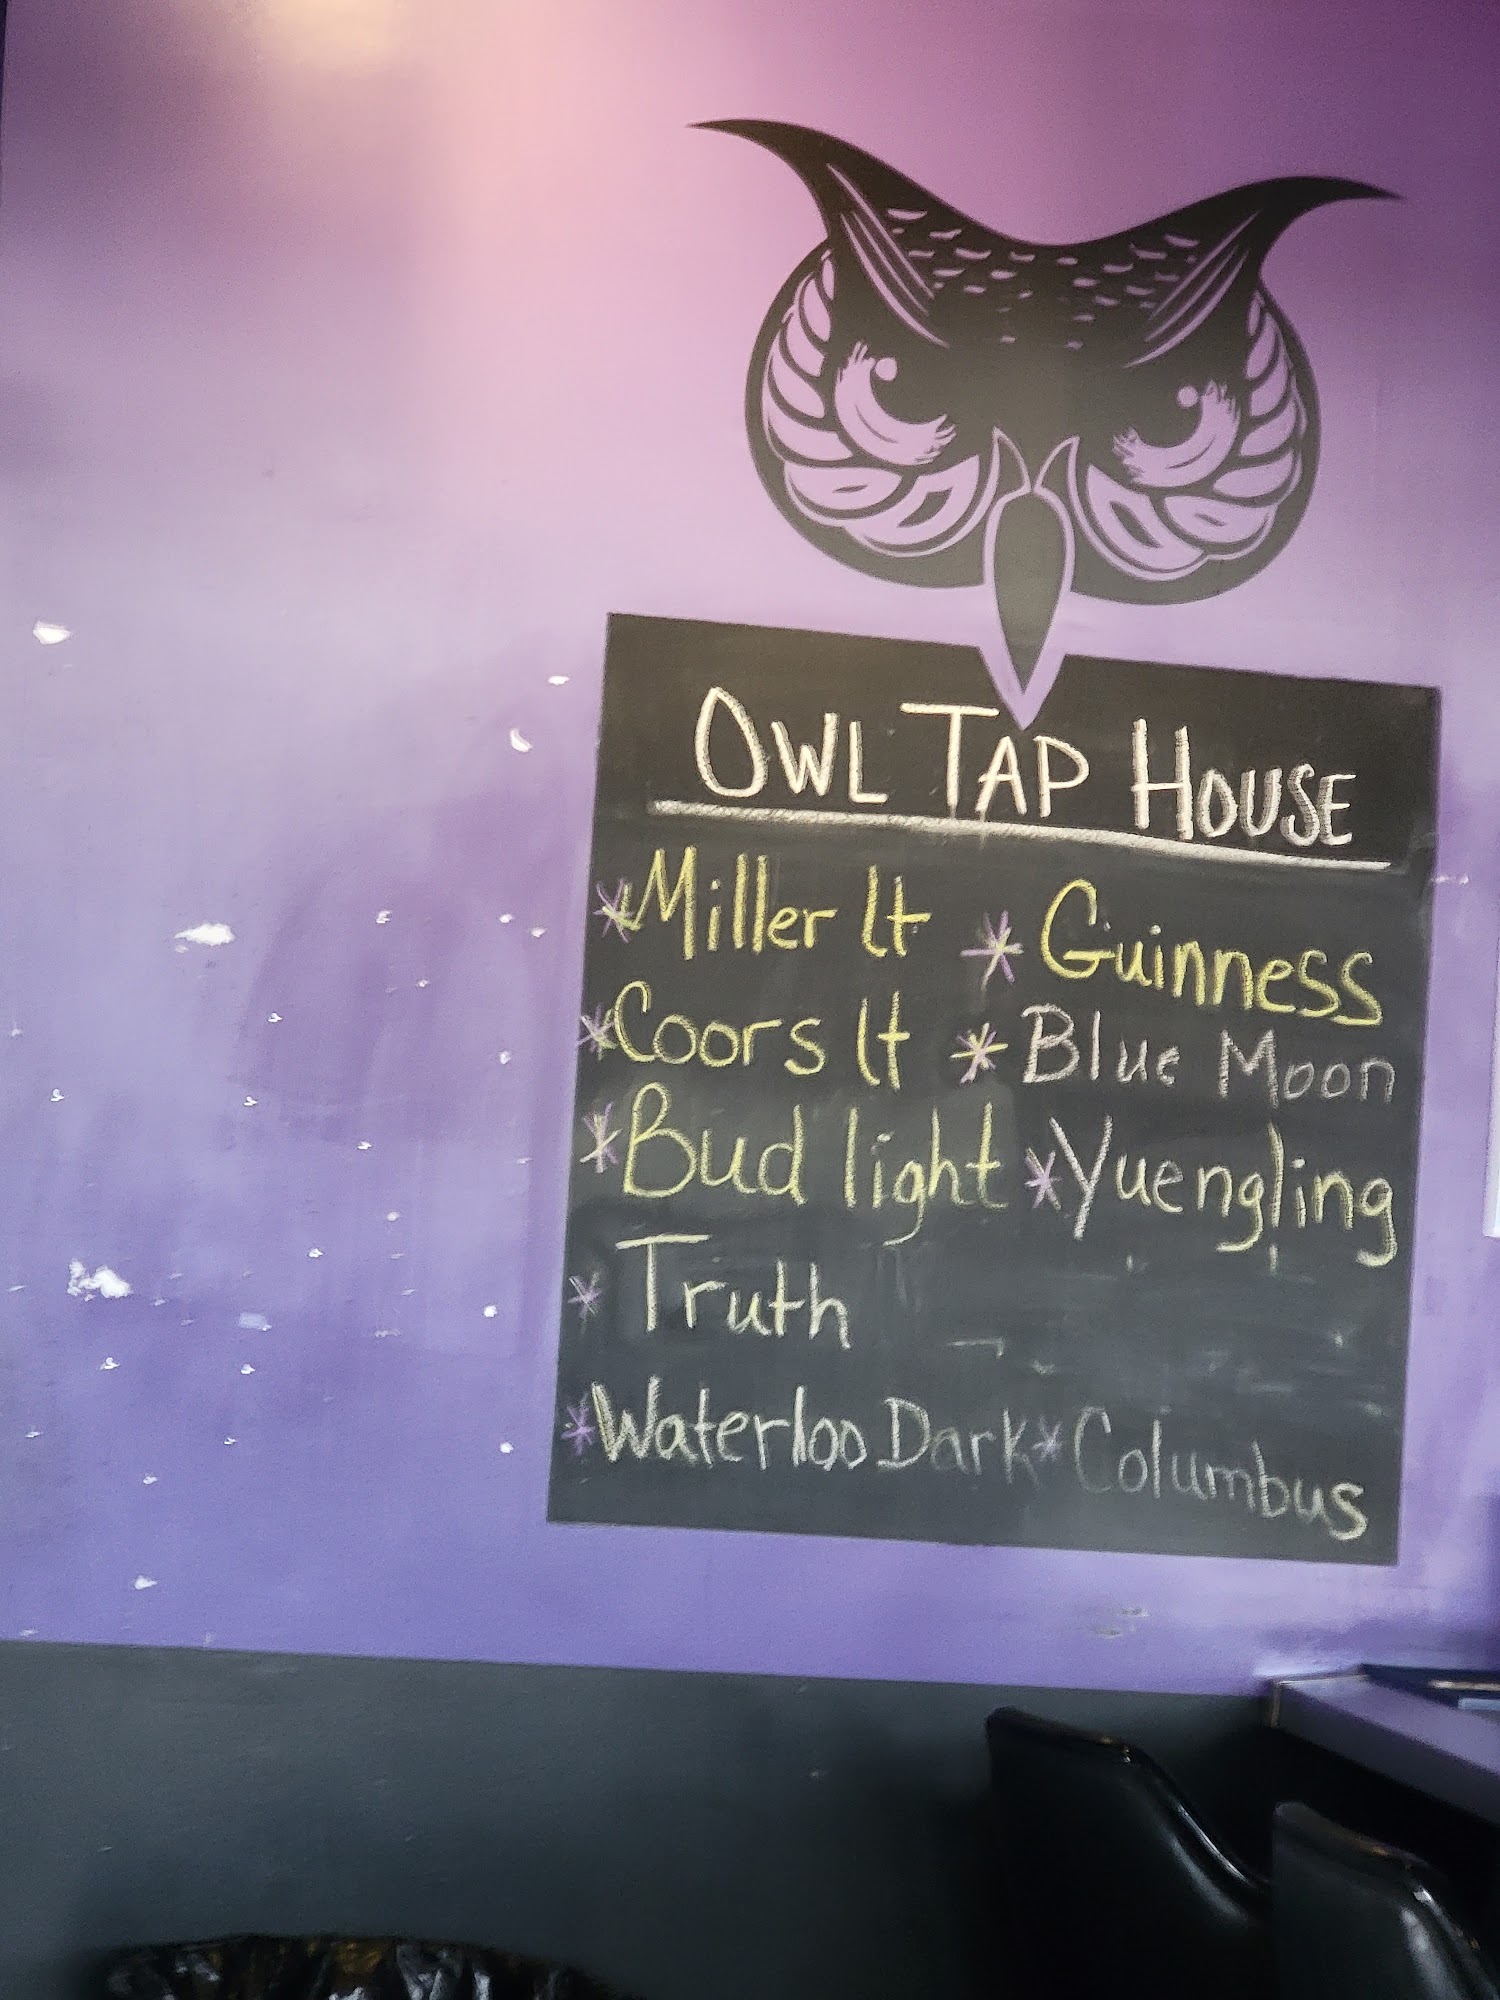 OWL TAP HOUSE
*Miller lt *Guinness
*Coors lt *Blue Moon
*Bud light *Yuengling
*Truth
*Waterloo Dark *Columbus